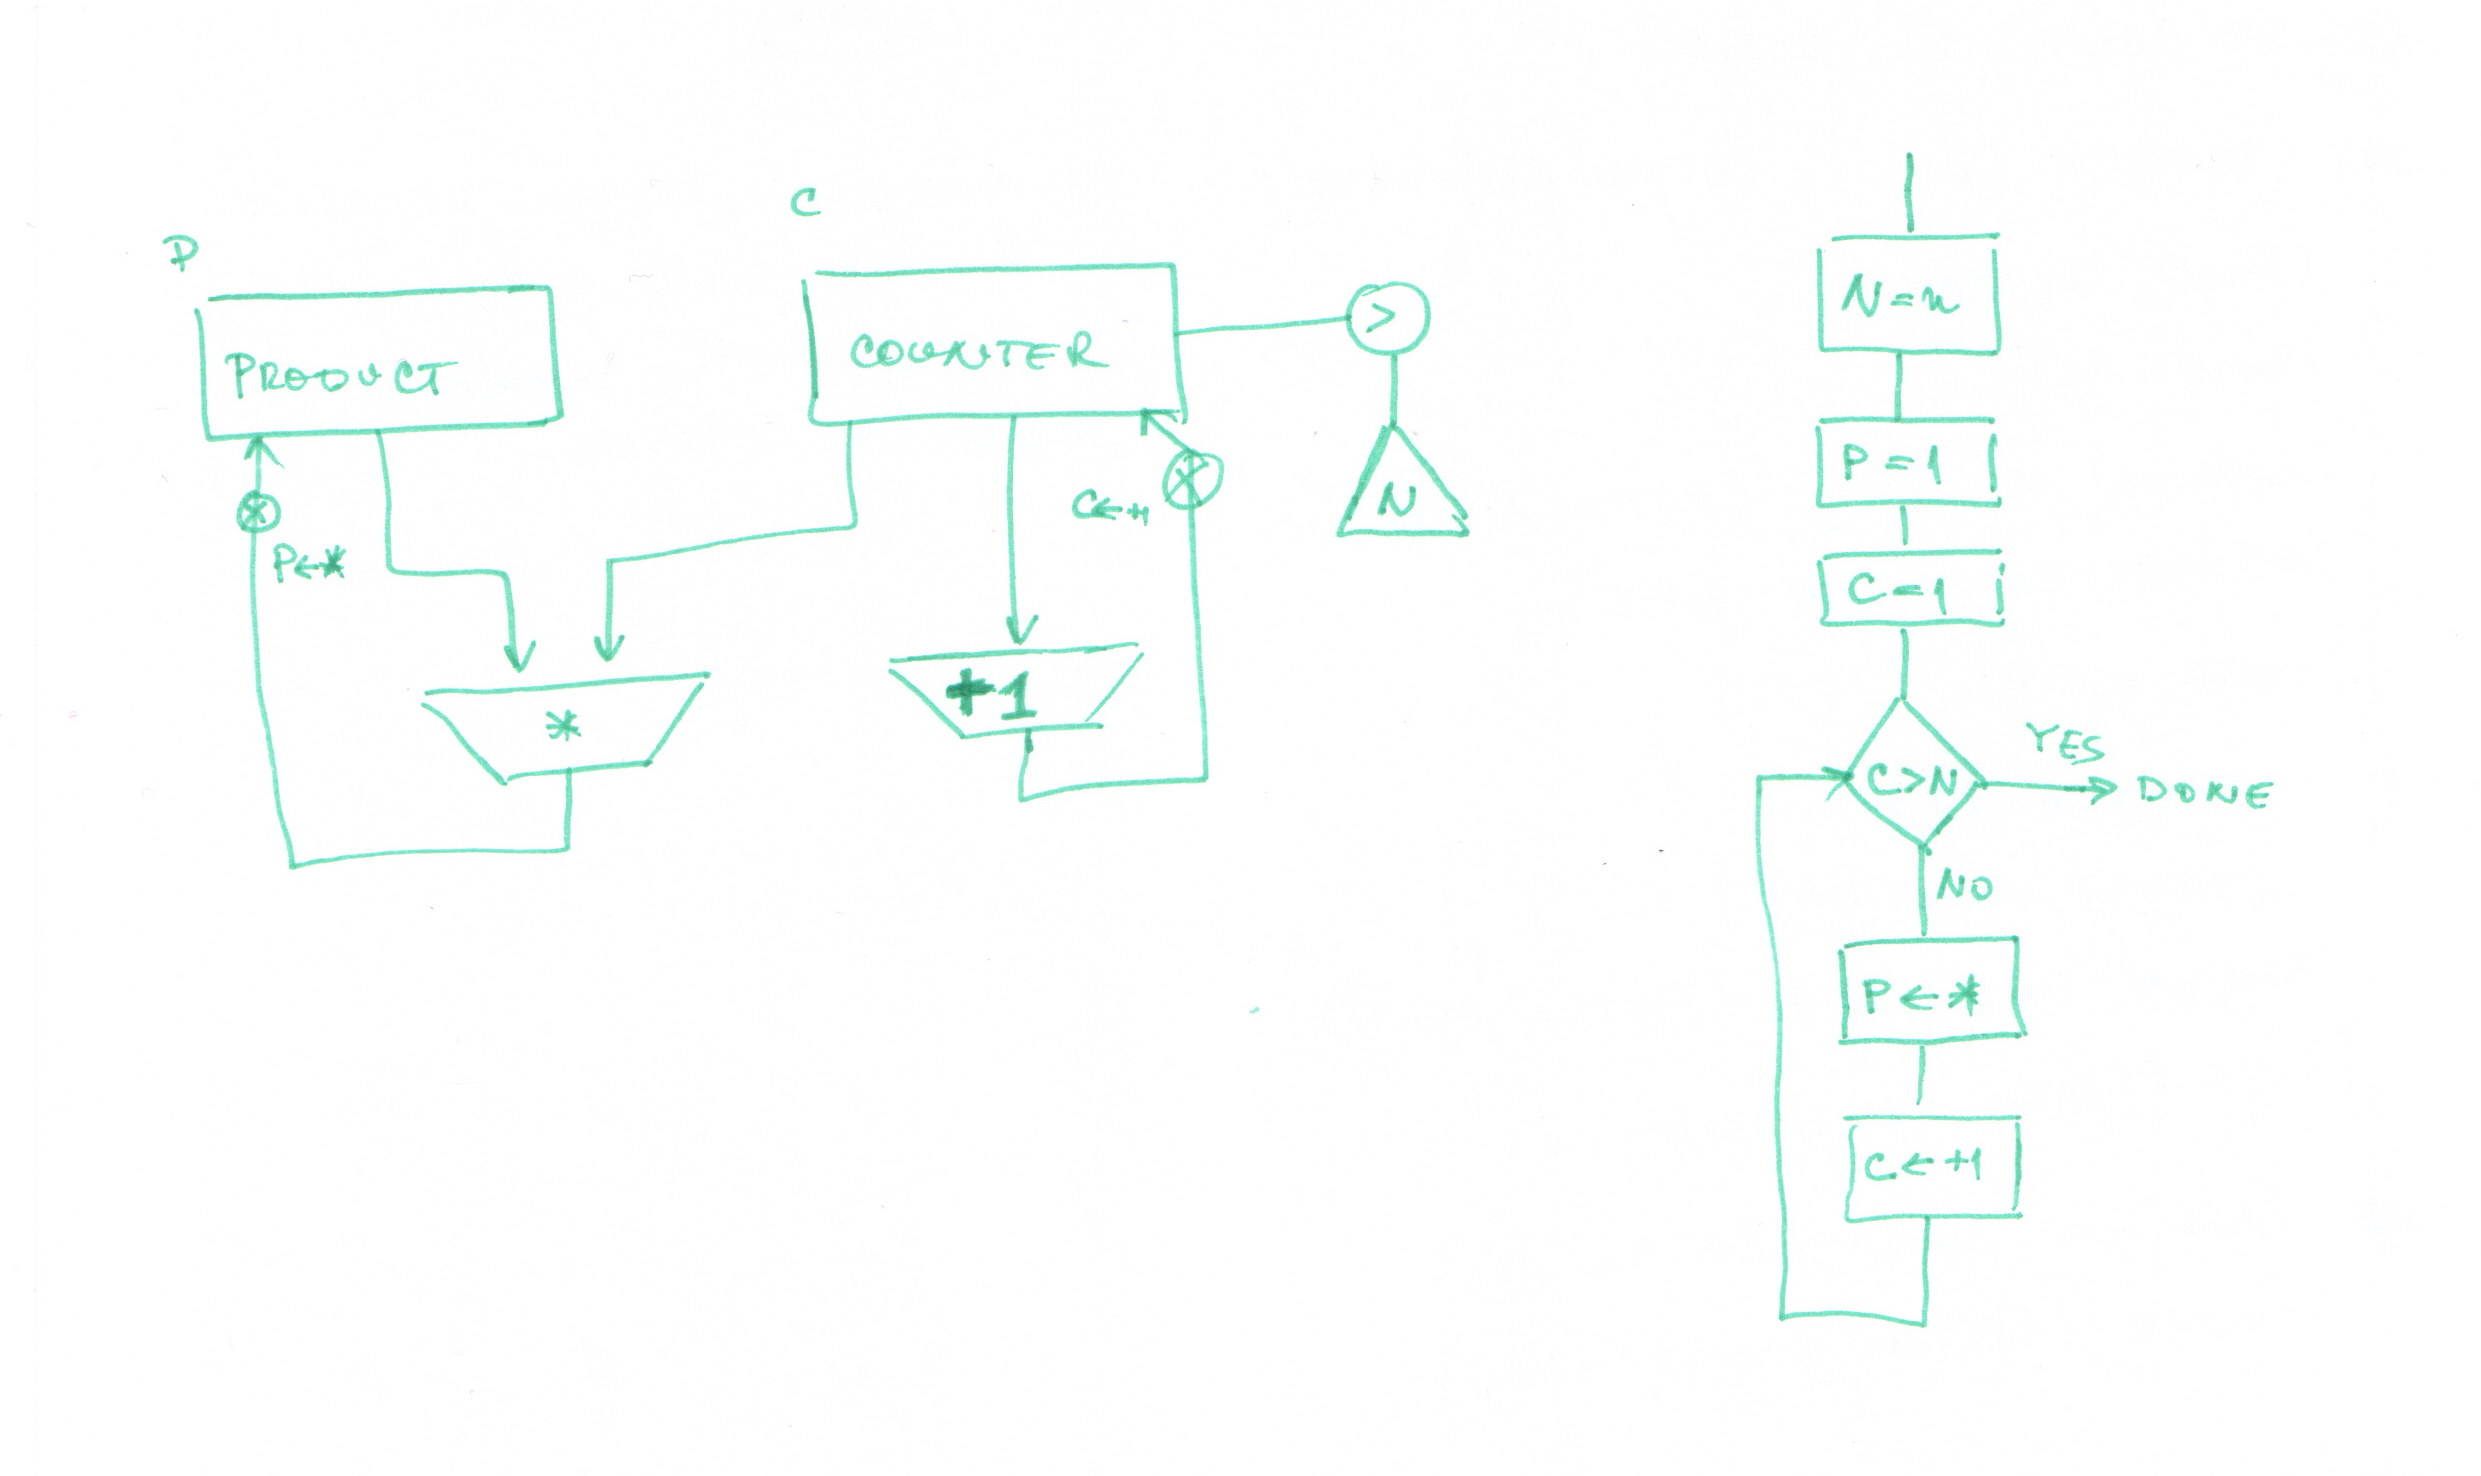 P
PRODUCT
P←*
*
C
COUNTER
C←+1
+1
>
N
N=n
P=1
C=1
C>N
YES
DONE
NO
P←*
C←+1